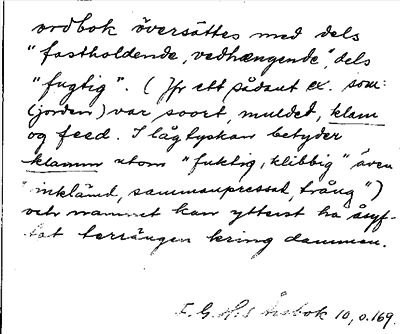 ordbok översättes med dels
"fastholdende, vedhængende", dels
"fugtig". (Jfr ett sådant ex. som:
(jorden) var soort, muldet, klam
og feed. I lågtyskan betyder
klamm utom "fuktig, klibbig" även
"inklämd, sammanpressad, trång")
och namnet kan ytterst ha åsyf-
tat terrängen kring dammen.
F. G. H:s Årsbok 10, s. 169.